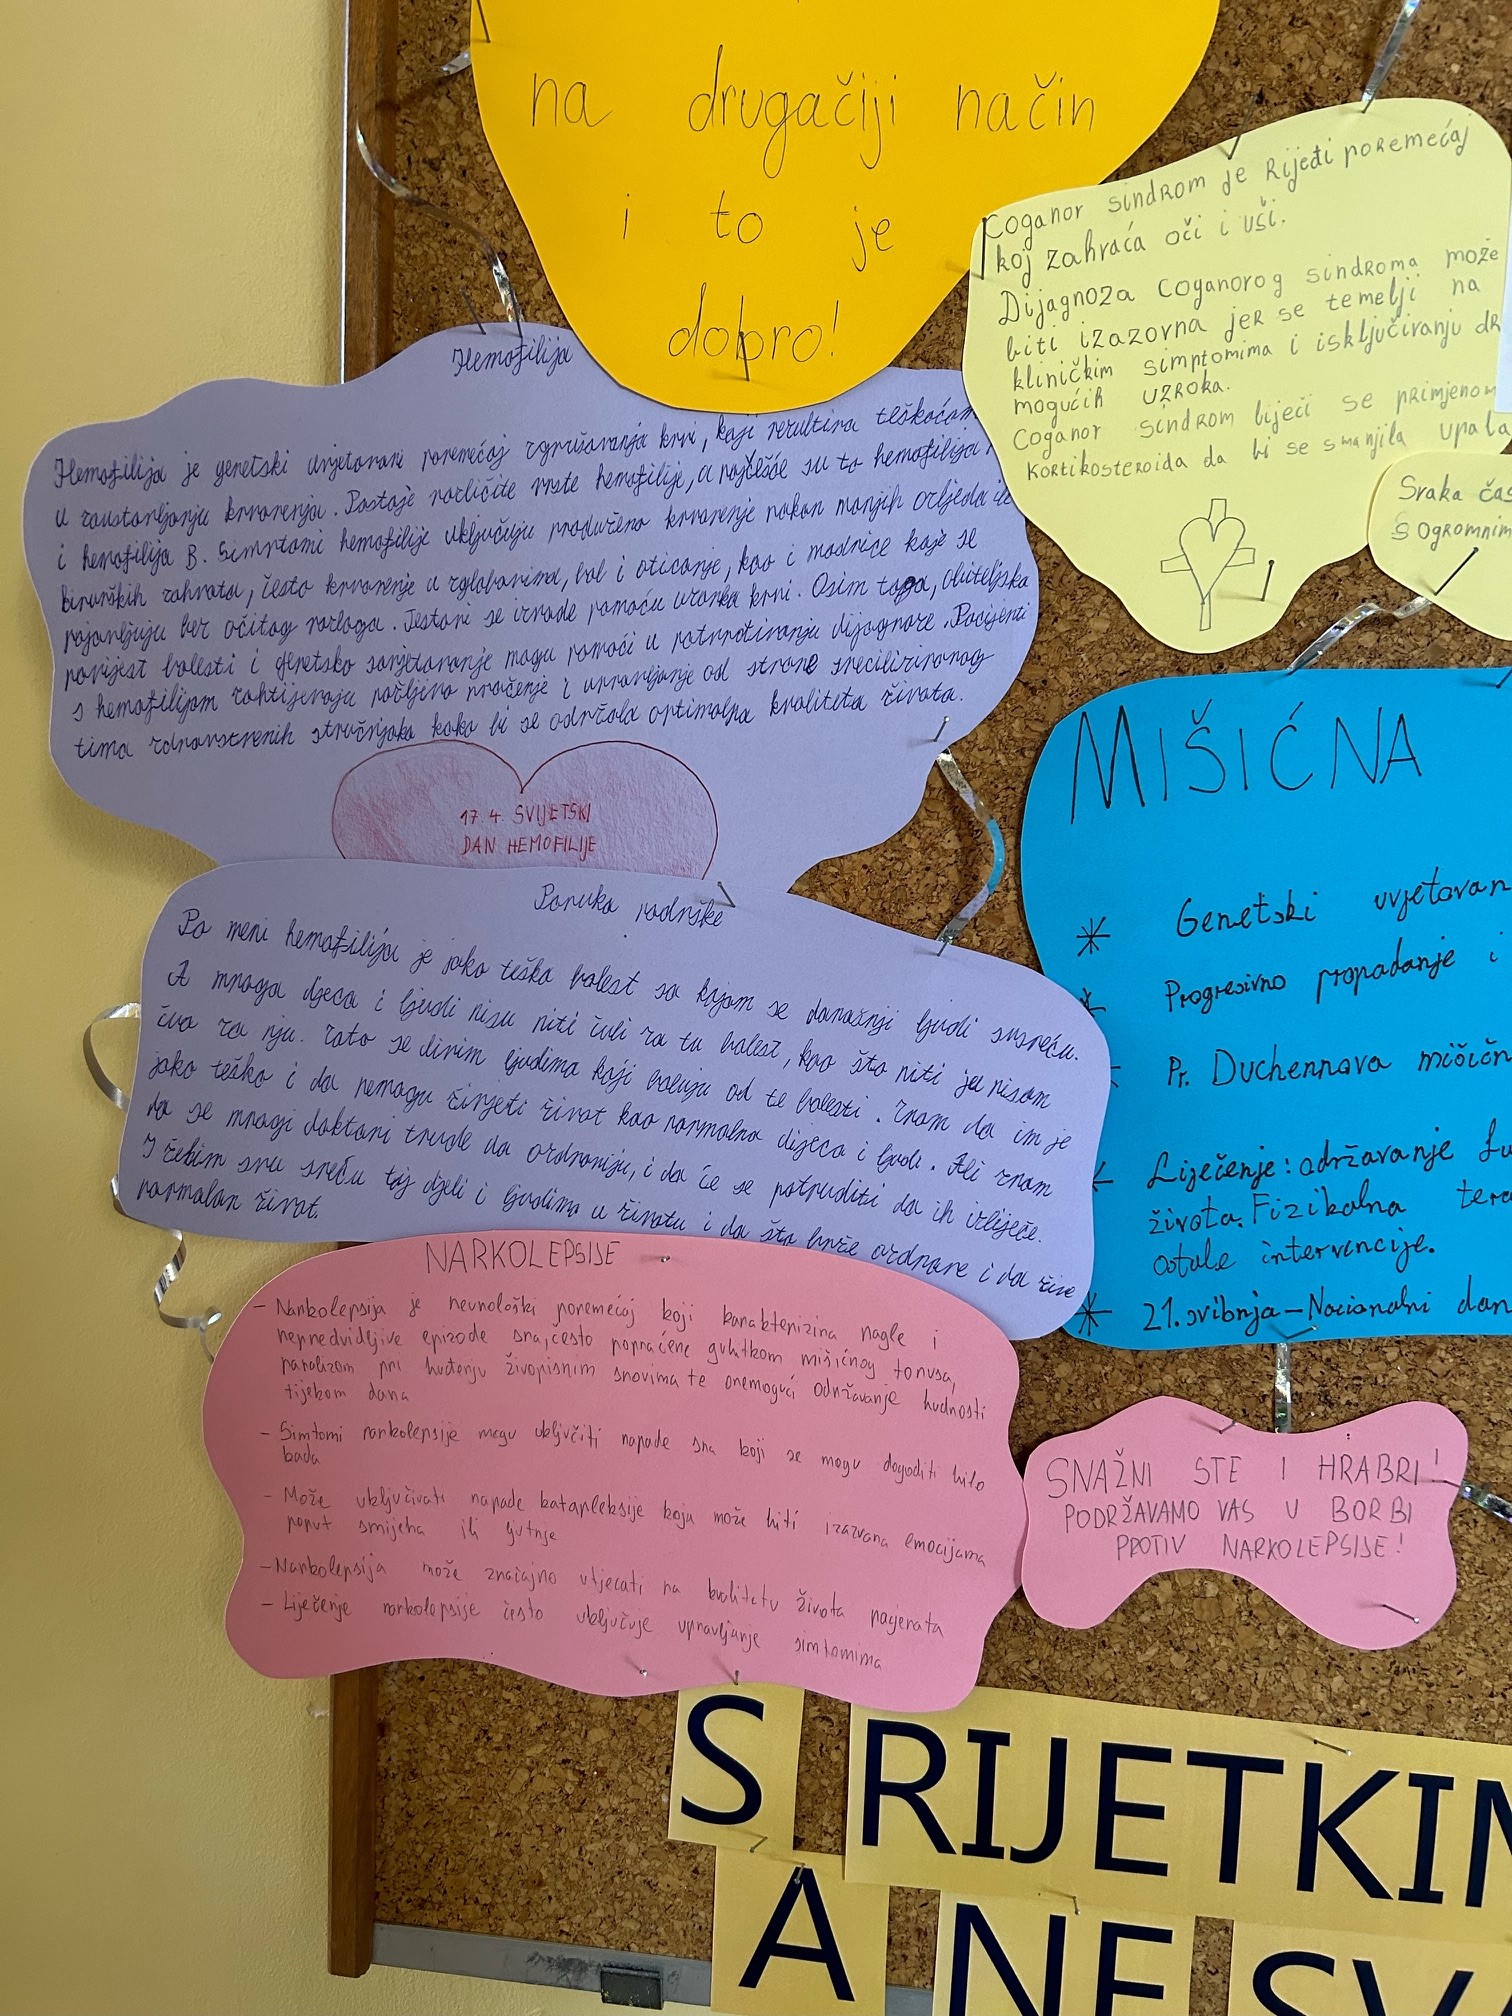 na drugačiji način
i to je
dobro!
Coganov sindrom je Rijeđi poremećaj
koj zahvaća oči i uši.
Dijagnoza Coganovog sindroma može
biti izazovna jer se temelji na
kliničkim simptomima i isključivanju dR
mogućih uzroka.
Coganov sindrom liječi se primjenom
kortikosteroida da bi se smanjila upala
Svaka čas
S Ogromnim
Hemofilija
Hemofilija je genetski uvjetovani poremećaj zgrušavanja krvi, koji rezultira teškoćam
u zaustavljanju krvarenja. Postoje različite vrste hemofilije, a najčešće su to hemofilija
i hemofilija B. Simptomi hemofilije uključuju produženo krvarenje nakon manjih ozljeda ili
kirurških zahvata, često krvarenje u zglobovima, bol i oticanje, kao i modrice koje se
pojavljuju bez očitog razloga. Testovi se izvode pomoću uzorka krvi. Osim toga, obiteljska
povijest bolesti i genetsko savjetovanje mogu pomoći u potvrđivanju dijagnoze. Pacijenti
s hemofilijom zahtijevaju pažljivo praćenje i upravljanje od strane
tima zdravstvenih stručnjaka kako bi se održala optimalna kvaliteta života.
17.4. SVIJETSKI
DAN HEMOFILIJE
Poruka podrške
Po meni hemofilija je jako teška bolest sa kojom se današnji ljudi susreću.
A mnoga djeca i ljudi nisu niti čuli za tu bolest, kao što niti ja nisam
čuo za nju. Zato se divim ljudima koji boluju od te bolesti. Znam da im je
jako teško i da nemogu živjeti život kao normalna dijeca i ljudi. Ali znam
da se mnogi doktori trude da ozdraviju, i da će se potruditi da ih izliječe.
I želim svu sreću toj djeci i ljudima u životu i da što brže ozdrave i da žive
normalan život.
MIŠIĆNA
* Genetski uvjetovan
* Progresivno propadanje i
Pr. Duchennova mišićn
Liječenje: održavanje fu
života. Fizikalna tera
Ostale intervencije.
* 21. svibnja - Nacionalni dan
NARKOLEPSIJE
- Narkolepsija je neurološki poremećaj koji karakterizira nagle i
nepredvidljive epizode sna, cesto popraćene gubitkom mišićnog tonusa,
paralizom pri buđenju živopisnim snovima te onemogući održavanje budnosti
tijekom dana
- Simtomi narkolepsije mogu uključiti napade sna koji se mogu dogoditi bilo
kada
- Može uključivati napade katapleksije koja može biti izazvana emocijama
poput smijeha ili ljutnje
- Narkolepsija može značajno utjecati na kvalitetu života pacjenata
- Liječenje narkolepsije često uključuje upravljanje simtomima
SNAŽNI STE I HRABRI!
PODRŽAVAMO VAS U BORBI
PROTIV NARKOLEPSIJE!
S RIJETKIM
A NE SV